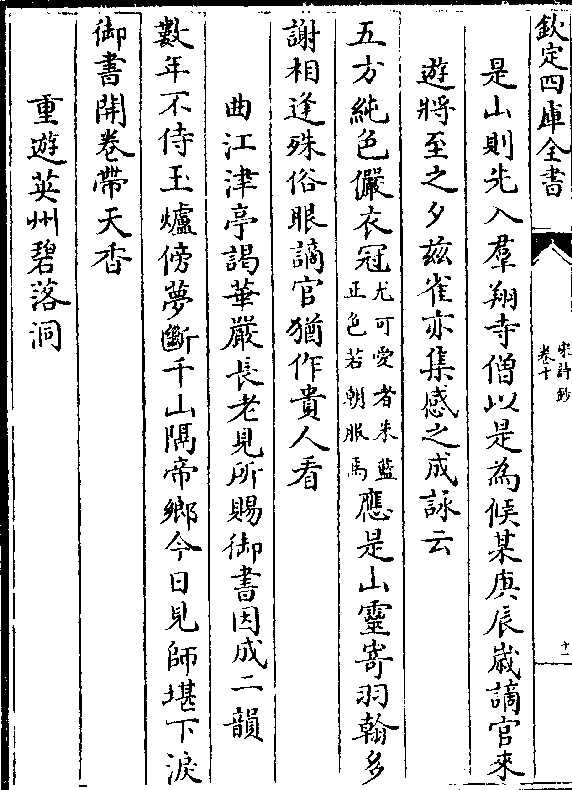 欽定四庫全書
宋詩鈔
卷十
十二
是山則先入羣翔寺僧以是為候某庚辰嵗謫官來
遊將至之夕兹雀亦集感之成詠云
五方純色儼衣冠尤可愛者朱藍正色若朝服焉應是山靈寄羽翰多
謝相逢殊俗眼謫官猶作貴人看
曲江津亭謁華嚴長老見所賜御書因成二韻
數年不侍玉爐傍夢斷千山隔帝鄉今日見師堪下淚
御書開卷帶天香
重遊英州碧落洞